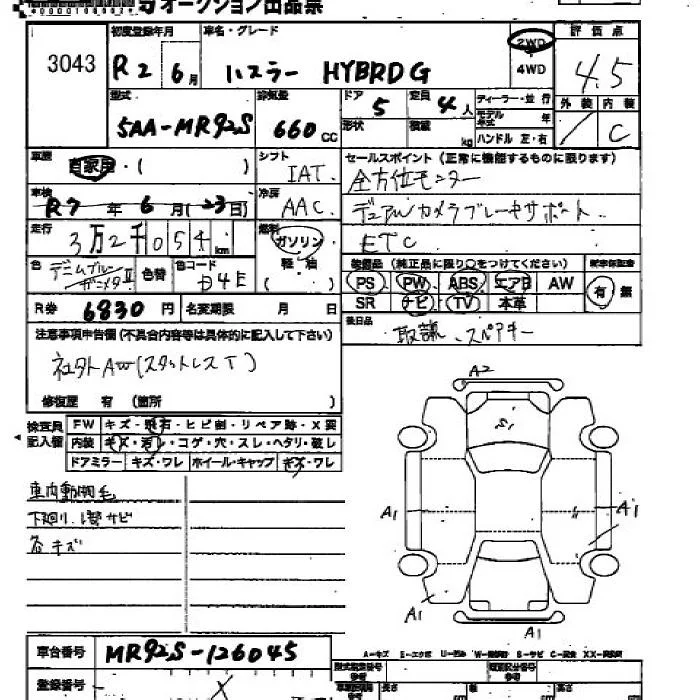 オークション出品票
3043
初度登録年月
R2 6月
車名・グレード
ハスラー HYBRD G
2WD
4WD
評価点
4.5
外装 内装
C
型式
5AA-MR92S
排気量
660 CC
ドア
5
定員
4人
形状
積載
kg
ディーラー・並行
モデル年式 年
ハンドル 左・右
車歴
自家用・( )
シフト
IAT
セールスポイント (正常に機能するものに限ります)
全方位モニター
デュアルカメラブレーキサポート
ETC
車検
R7年6月(23日)
冷房
AAC
走行
3万2千054km
燃料
ガソリン
軽・油
色
デニムブルーガンメタII
色替
色コード
D4E
装備品 (純正品に限り○をつけてください)
PS PW ABS エアB AW
SR ナビ TV 本革
有 無
R券 6830円
名変期限 月 日
後日品
取説、スペアキー
注意事項申告欄 (不具合内容等は具体的に記入して下さい)
社外AW(スタットレスT)
修復歴 有 (箇所 )
検査員記入欄
FW キズ・飛石・ヒビ割・リペア跡・X要
内装 キズ・汚レ・コゲ・穴・スレ・ヘタリ・破レ
ドアミラー キズ・ワレ ホイール・キャップ キズ・ワレ
車内動物毛
下廻り1部サビ
各キズ
A2
S1
A1
A1
A1
A1
車台番号
MR92S-126045
登録番号
長さ
幅
高さ